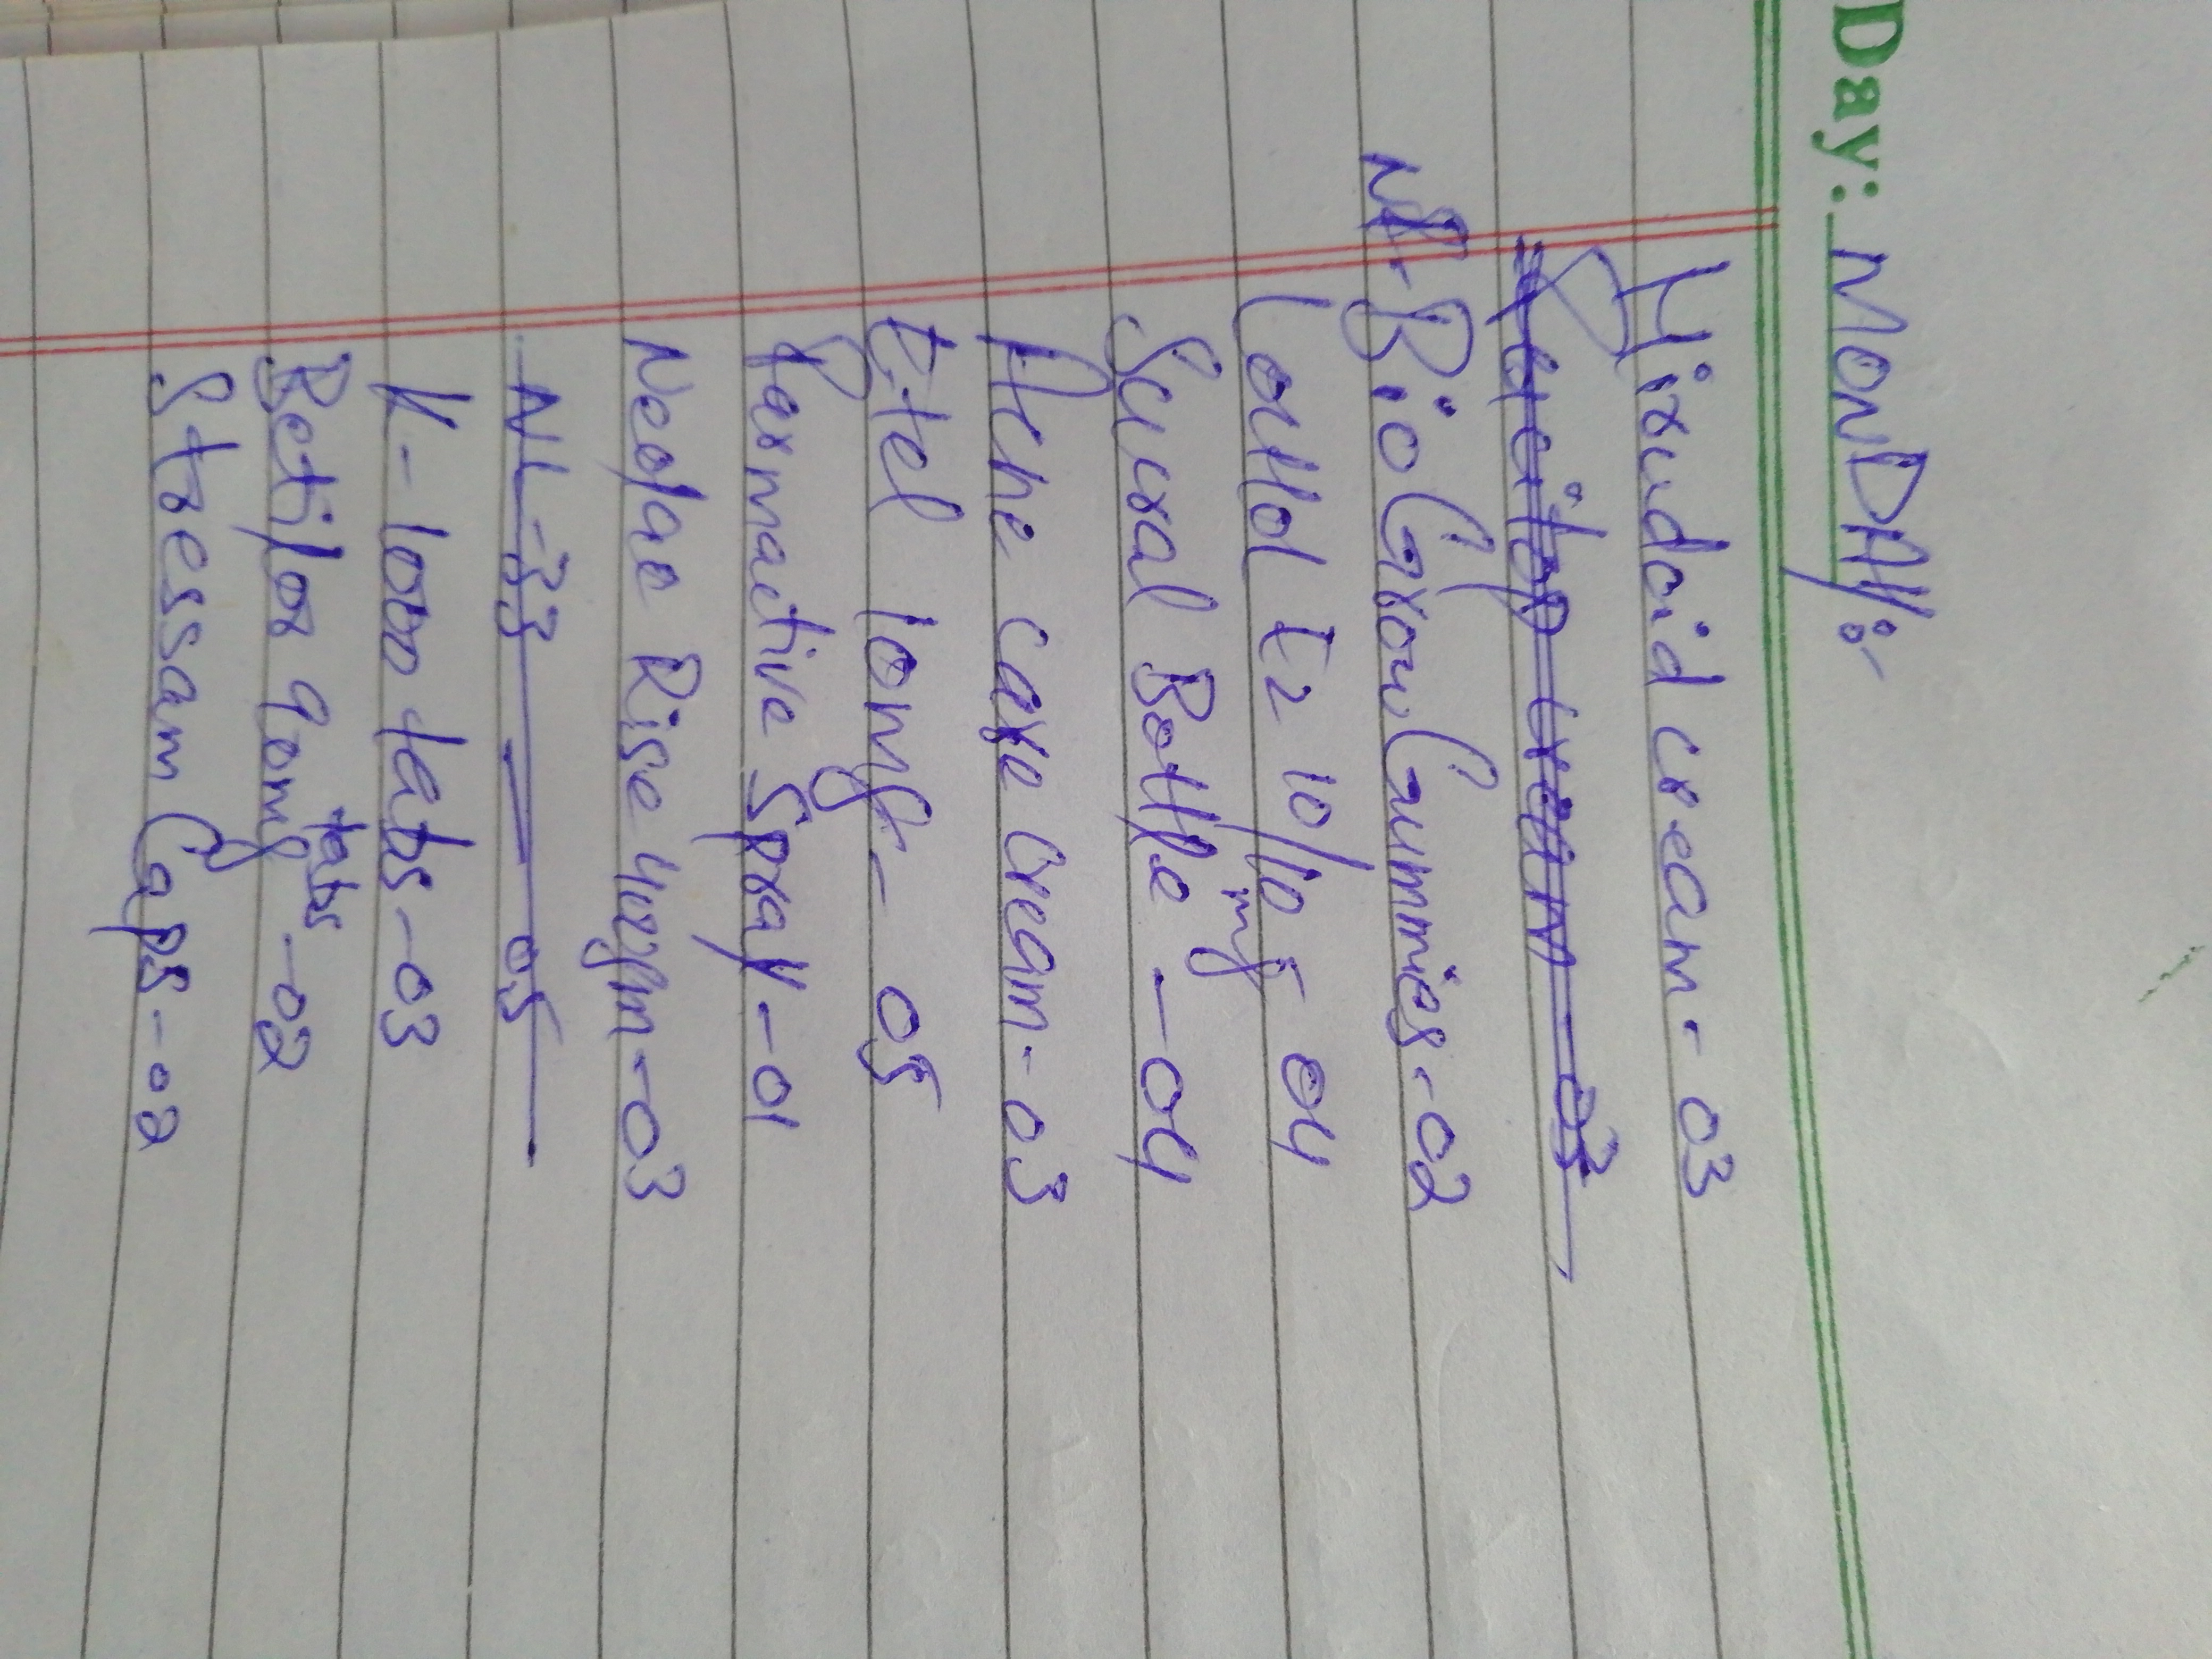 Day: MONDAY:-
Hirudoid cream - 03
NF- BioGrow Gummies - 02
Lattol Ez 10/10 mg - 04
Sucral Bottle - 04
Acne care Cream - 03
Etel 10mg - 05
Garmactive Spray - 01
Neopae Rise 400gm - 03
NL-33 — 05
K-1000 tabs - 03
Betilor 90mg tabs - 02
Stressam Caps - 02